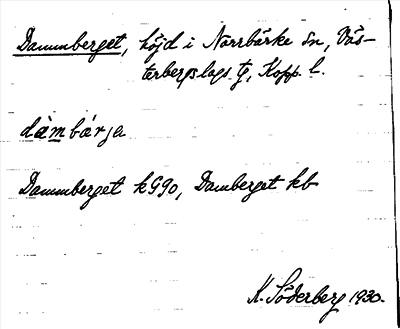 Dammberget, höjd i Norrbärke sn, Väs-
terbergslags tg, Kopp. l.
dàmbárja
Dammberget kG90, Damberget kb
K. Söderberg 1930.